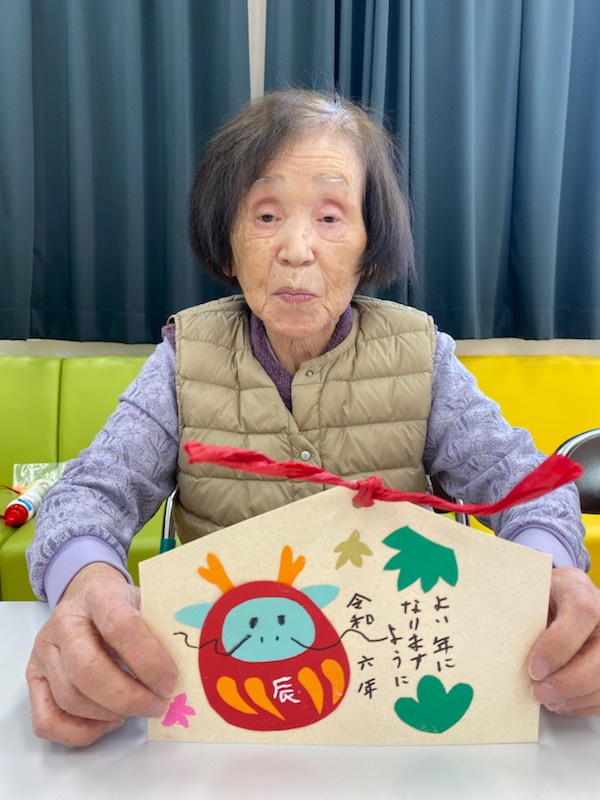 よい年に
なります
ように
令和六年
辰